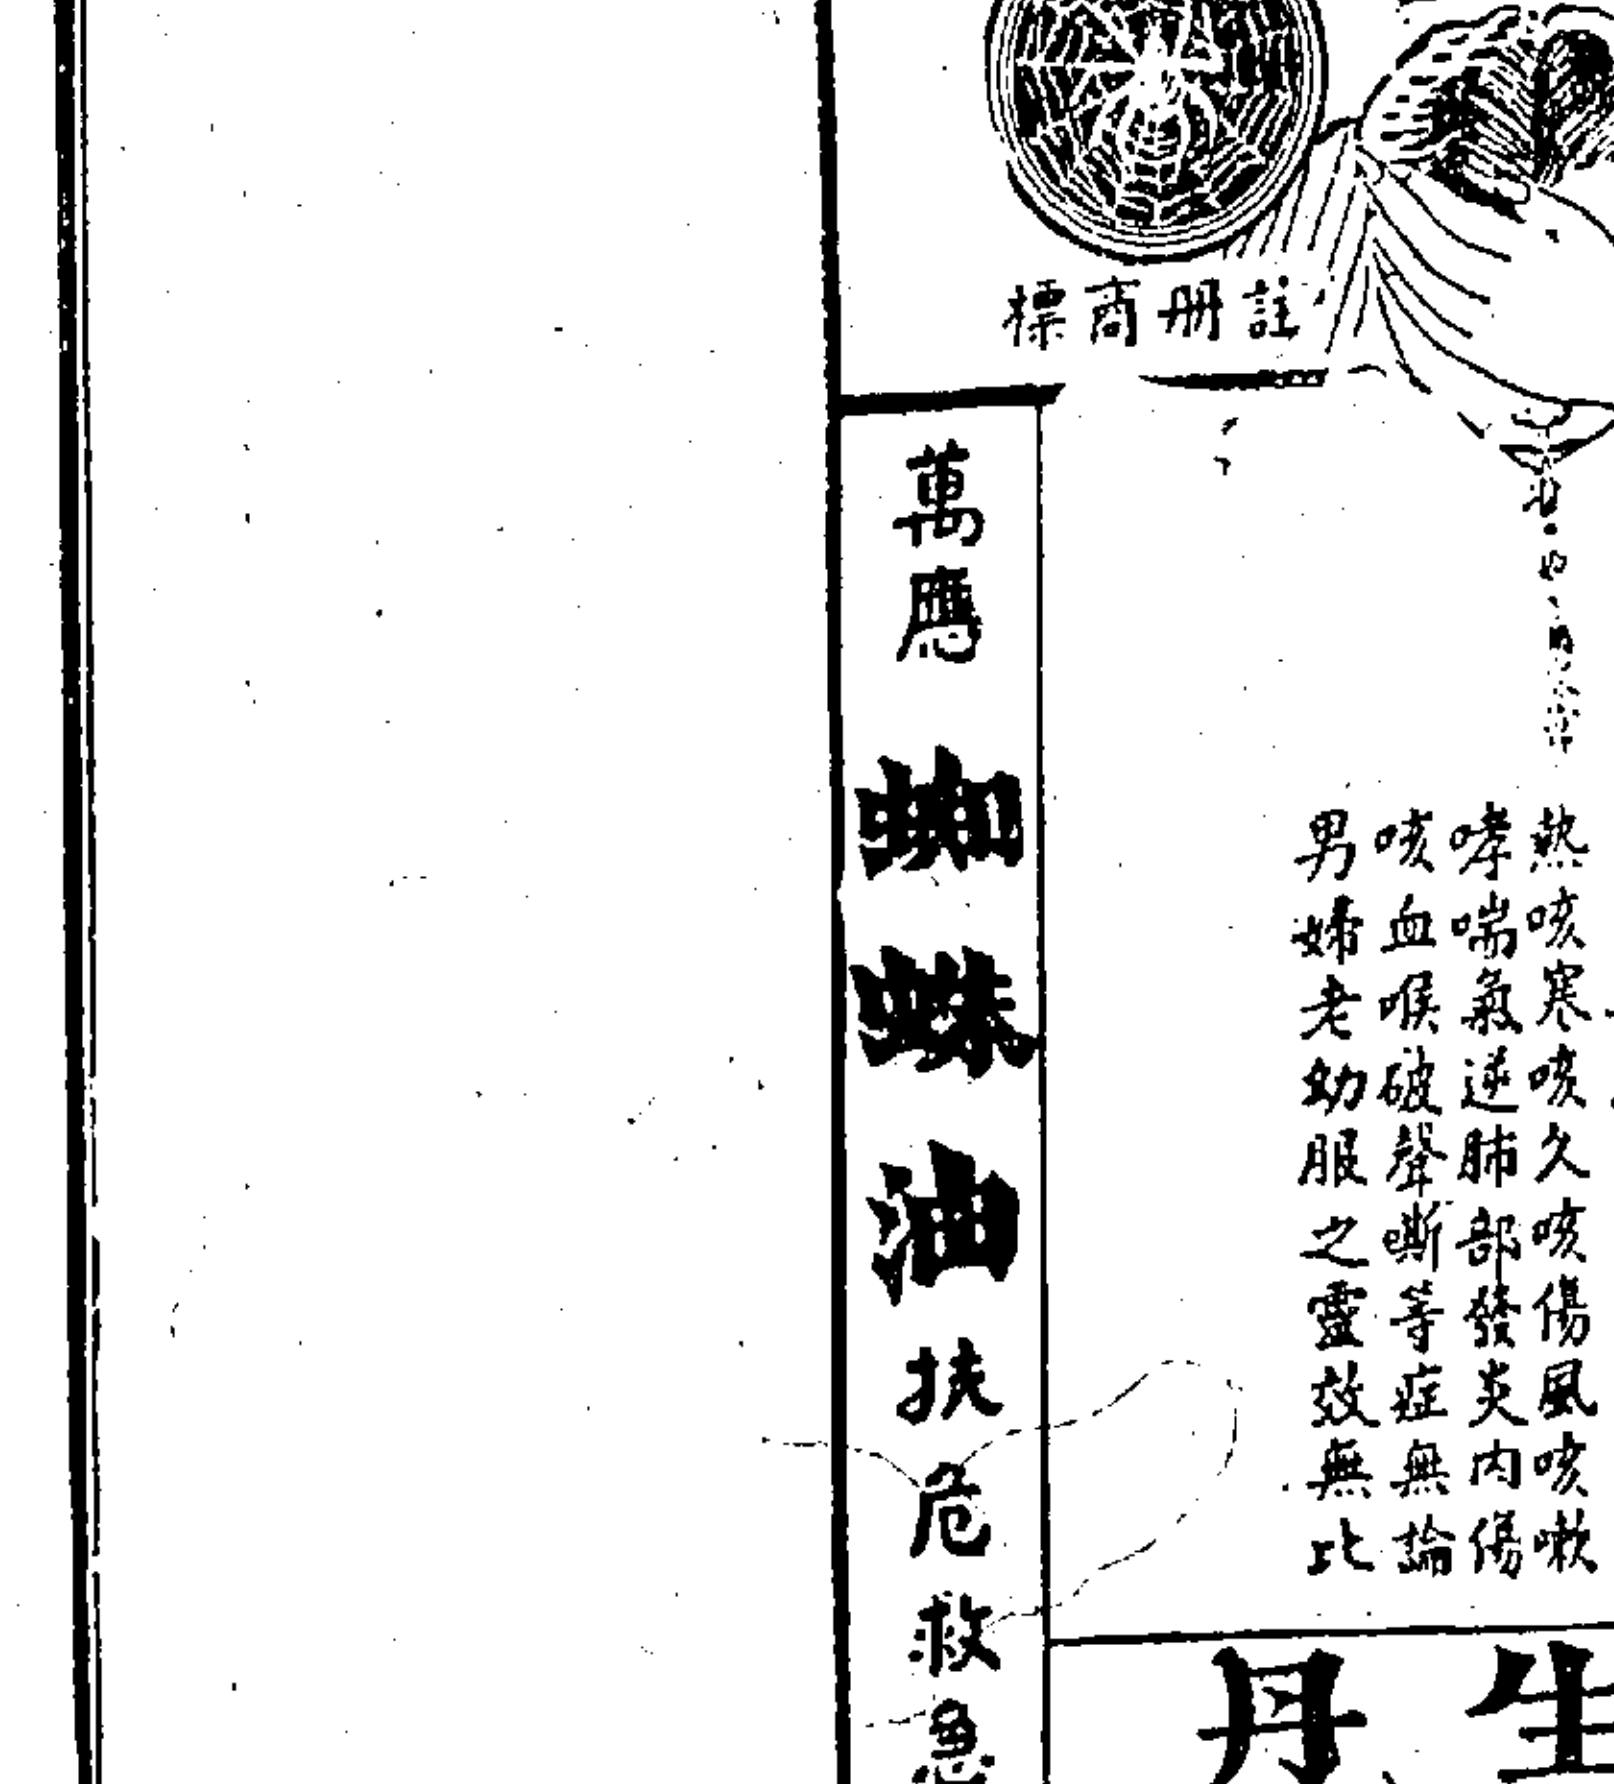 註册商標
熱咳寒咳久咳傷風咳嗽
哮喘氣逆肺部發炎內傷
咳血喉破聲嘶等症無論
男婦老幼服之靈效無比
生丹
萬應蜘蛛油扶危救急